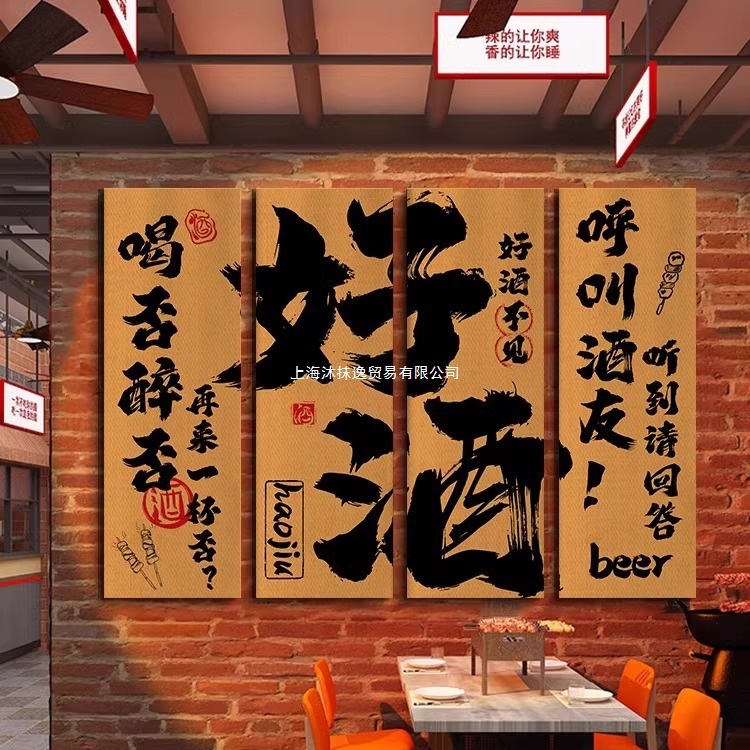 辣的让你爽
香的让你睡
喝否醉否
再来一杯否?
酒
酒
好酒
酒
haojiu
好酒不见
呼叫酒友!
听到请回答
beer
上海沐抹逸贸易有限公司